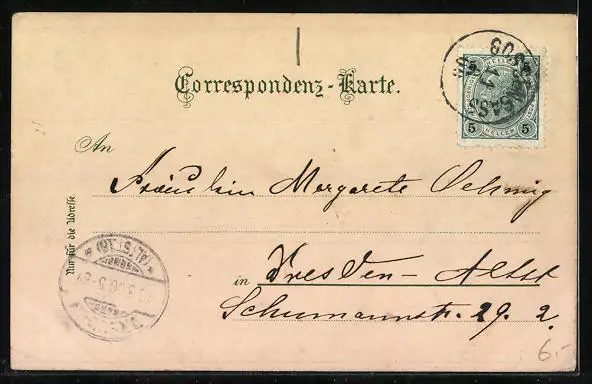 Correspondenz-Karte.
5 5
HELLER
An
Fräulein Margarete Oehmig
Nur für die Adresse.
in Dresden-Altst
Schumannstr. 29. 2.
(ALTST.16)
6.-